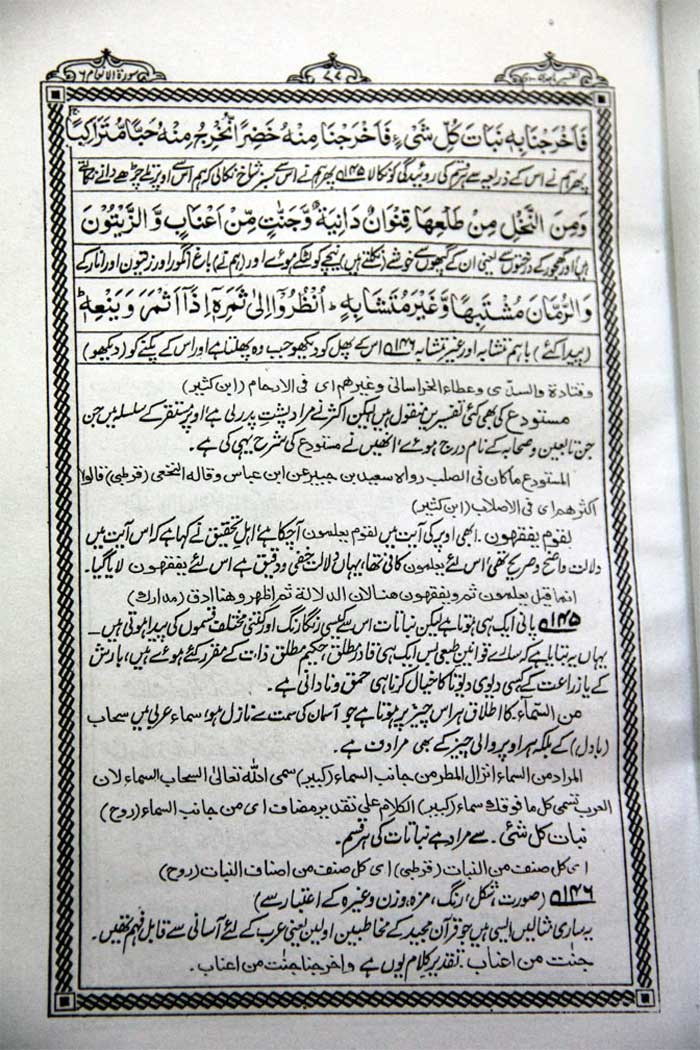 تفسیر ماجدی
۷۷
سورۃ الانعام ۶
فَاَخْرَجْنَا بِهٖ نَبَاتَ كُلِّ شَیْءٍ فَاَخْرَجْنَا مِنْهُ خَضِرًا نُّخْرِجُ مِنْهُ حَبًّا مُّتَرَاكِبًا
پھر ہم نے اس کے ذریعہ سے ہر قسم کی روئیدگی کو نکالا ۱۴۵ پھر ہم نے اس سے سبز شاخ نکالی کہ ہم اس سے اوپر تلے چڑھے دانے نکالتے
وَمِنَ النَّخْلِ مِنْ طَلْعِهَا قِنْوَانٌ دَانِیَةٌ وَّجَنّٰتٍ مِّنْ اَعْنَابٍ وَّالزَّیْتُوْنَ
ہیں اور کھجور کے درختوں سے یعنی ان کے گچھوں سے خوشے (نکلتے ہیں) نیچے کو لٹکے ہوئے اور (ہم نے) باغ انگور اور زیتون اور انار کے
وَالرُّمَّانَ مُشْتَبِهًا وَّغَیْرَ مُتَشَابِهٍ ؕ اُنْظُرُوْۤا اِلٰی ثَمَرِهٖۤ اِذَاۤ اَثْمَرَ وَیَنْعِهٖ ؕ
(پیدا کئے) باہم متشابہ اور غیر متشابہ ۱۴۶ اس کے پھل کو دیکھو جب وہ پھلتا ہے اور اس کے پکنے کو (دیکھو)
وقتادة والسدّی وعطاء الخراسانی وغیرهم ای فی الارحام (ابن کثیر)
مستودع کی بھی کئی تفسیریں منقول ہیں لیکن اکثر نے مراد پشتِ پدر لی ہے، اوپر مستقر کے سلسلہ میں جن
جن تابعین وصحابہ کے نام درج ہوئے، انھیں نے مستودع کی شرح یہی کی ہے۔
المستودع ما کان فی الصلب رواہ سعید بن جبیر عن ابن عباس وقاله النخعی (قرطبی) قالوا
اکثرهم ای فی الاصلاب (ابن کثیر)
لقوم یفقهون۔ ابھی اوپر کی آیت میں لقوم یعلمون آچکا ہے، اہلِ تحقیق نے کہا ہے کہ اس آیت میں
دلالت واضح وصریح تھی، اس لئے یعلمون کافی تھا، یہاں دلالت خفی و دقیق ہے اس لئے یفقهون لایا گیا۔
انما قیل یعلمون ثم ویفقهون هنا لان الدلالة ثم اظهر وهنا ادق (مدارک)
۱۴۵ پانی ایک ہی ہوتا ہے لیکن نباتات اس سے کیسی رنگارنگ اور کتنی مختلف قسموں کی پیدا ہوتی ہیں۔
یہاں یہ بتایا ہے کہ سارے قوانینِ طبعی بس ایک ہی قادر مطلق، حکیم مطلق ذات کے مقرر کئے ہوئے ہیں، بارش
کے یا زراعت کے کسی دیوی دیوتا کا خیال کرنا ہی حمق و نادانی ہے۔
من السماء۔ کا اطلاق ہر اس چیز پر ہوتا ہے جو آسمان کی سمت سے نازل ہو، سماء عربی میں سحاب
(بادل) کے بلکہ ہر اوپر والی چیز کے بھی مرادف ہے۔
المراد من السماء انزال المطر من جانب السماء (کبیر) سمی الله تعالیٰ السحاب السماء لان
العرب تسمی کل ما فوقك سماء (کبیر) الکلام علی تقدیر مضاف ای من جانب السماء (روح)
نبات کل شئ۔ سے مراد ہے نباتات کی ہر قسم۔
ای کل صنف من النبات (قرطبی) ای کل صنف من اصناف النبات (روح)
۱۴۶ (صورت، شکل، رنگ، مزہ، وزن وغیرہ کے اعتبار سے)
یہ ساری مثالیں ایسی ہیں جو قرآن مجید کے مخاطبین اولین یعنی عرب کے لئے آسانی سے قابلِ فہم تھیں۔
جنٰت من اعناب۔ تقدیر کلام یوں ہے واخرجنا جنٰت من اعناب۔